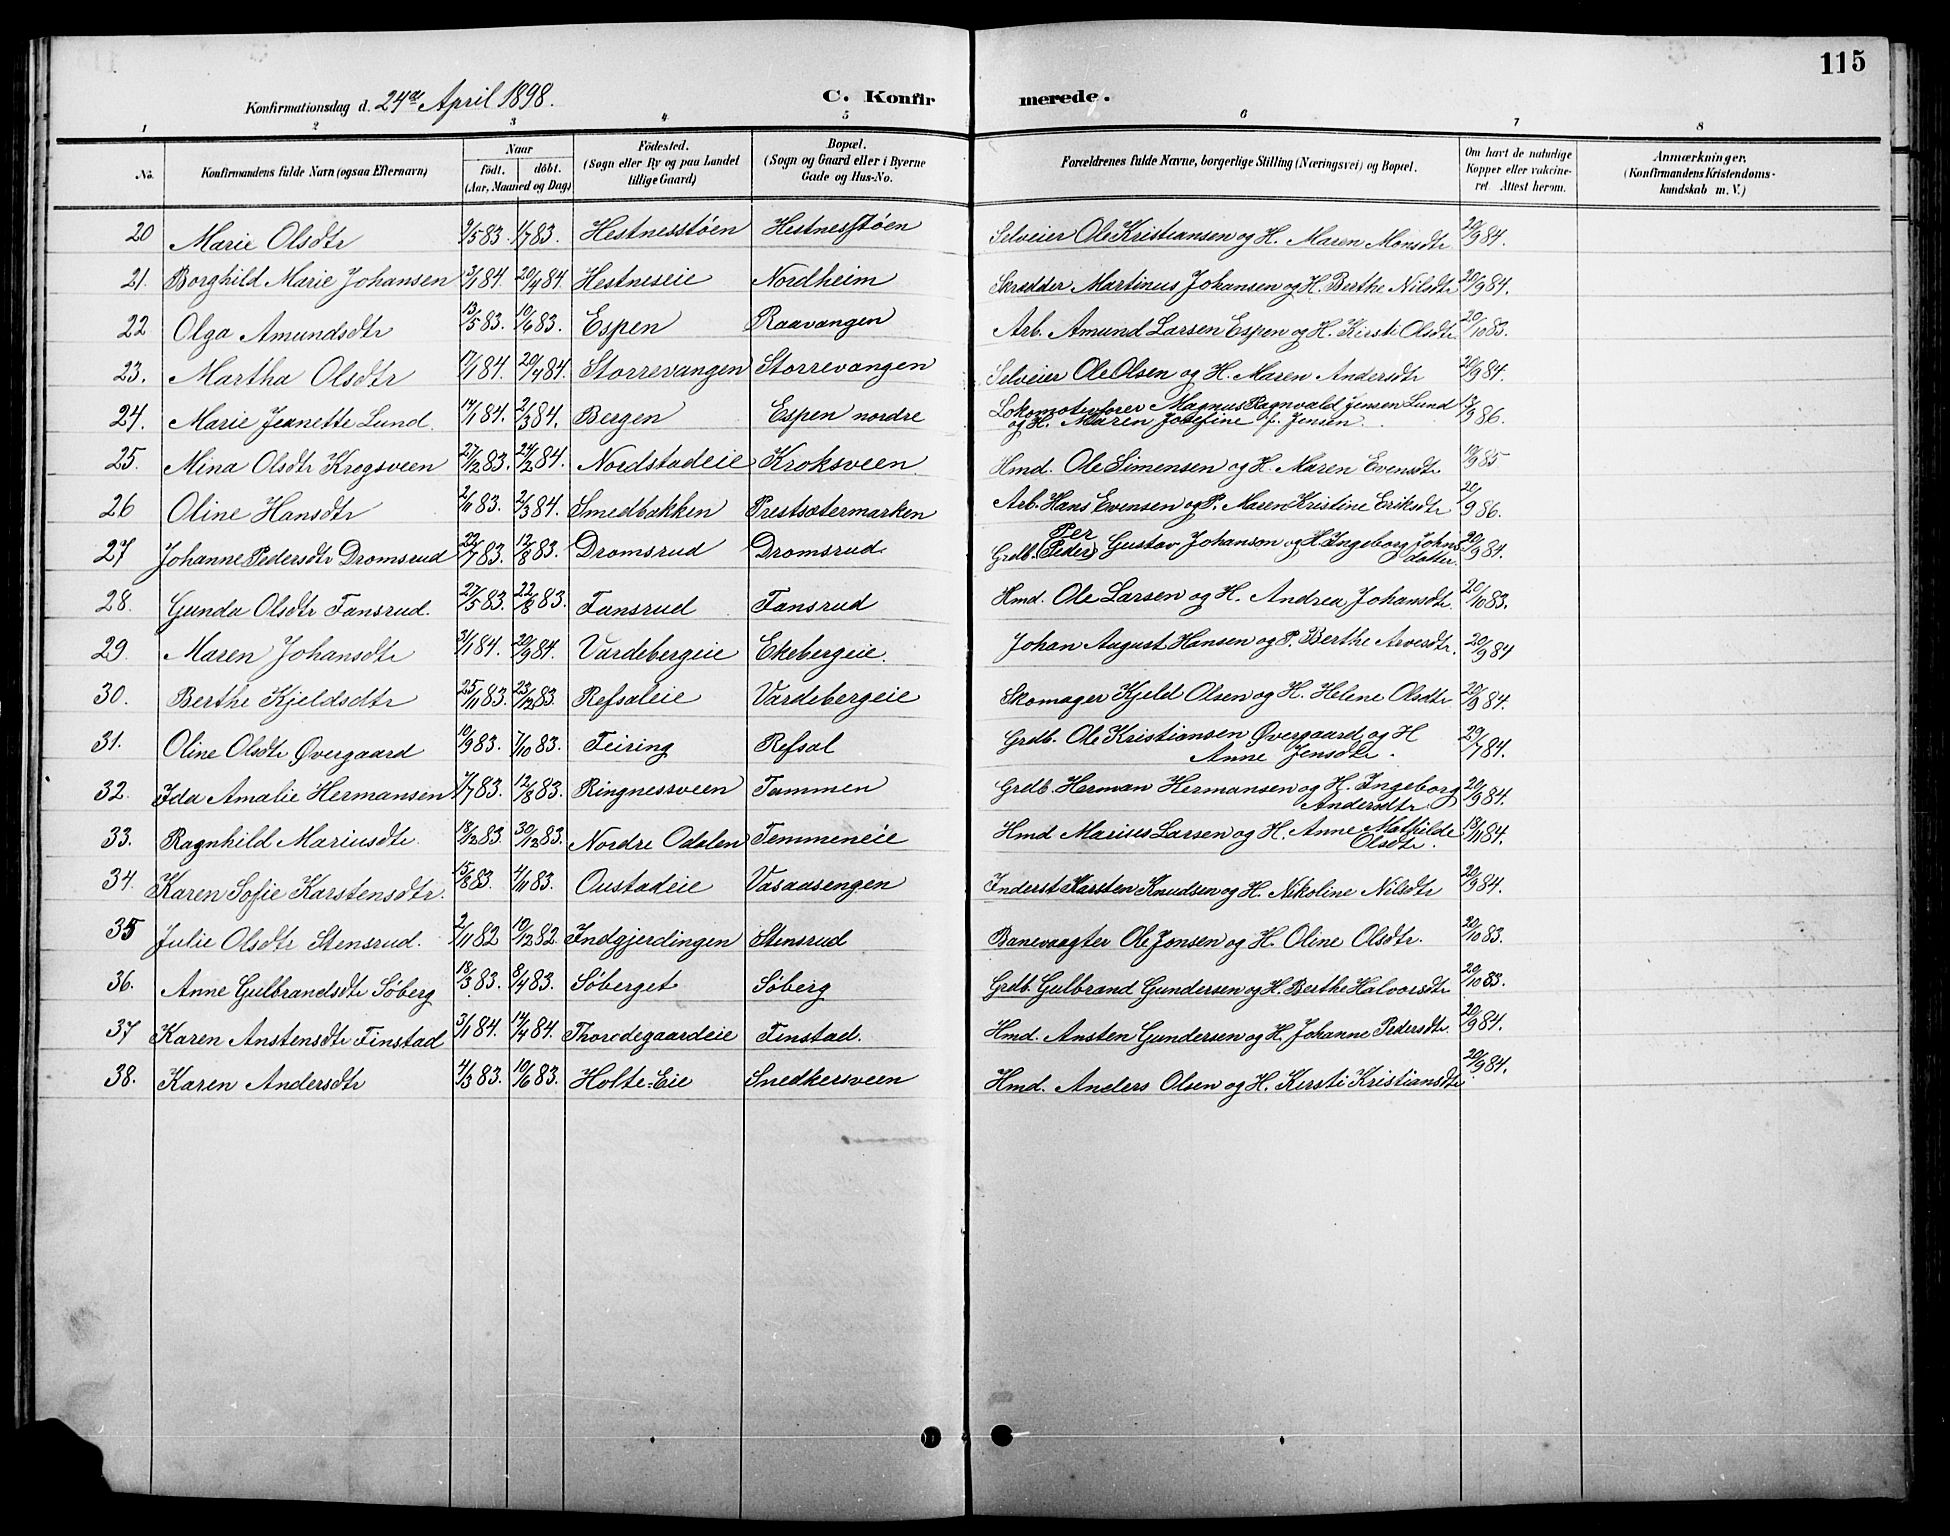 115
Konfirmationsdag d. 24de April 1898. C. Konfirmerede.
1 2 3 4 5 6 7 8
No. Konfirmandens fulde Navn (ogsaa Efternavn) Naar födt. döbt. (Aar, Maaned og Dag) Födested. (Sogn eller By og paa Landet tillige Gaard) Bopæl. (Sogn og Gaard eller i Byerne Gade og Hus-No. Forældrenes fulde Navne, borgerlige Stilling (Næringsvei) og Bopæl. Om havt de naturlige Kopper eller vakcineret. Attest herom. Anmærkninger. (Konfirmandens Kristendomskundskab m. V.)
20 Marie Olsdtr 9/5 83. 1/7 83. Hestnesstøen Hestnesstøen Selveier Ole Kristiansen og H. Maren Monsdtr 20/9 84.
21. Borghild Marie Johansen 3/1 84. 20/4 84. Hestneseie Nordheim Skrædder Martinus Johansen og H. Berthe Nilsdtr 20/9 84.
22 Olga Amundsdtr 13/5 83. 10/6 83. Espen Raavangen Arb. Amund Larsen Espen og H. Kirsti Olsdtr 20/10 83.
23. Martha Olsdtr 17/1 84. 20/4 84. Storrevangen Storrevangen Selveier Ole Olsen og H. Maren Andersdtr 20/9 84.
24. Marie Jeanette Lund. 17/1 84. 2/3 84. Bergen Espen nordre Lokomotivfører Magnus Ragnvald Jensen Lund og H. Maren Josefine f. Jensen. 17/9 86.
25. Mina Olsdtr Krogsveen 27/12 83. 24/2 84. Nordstadeie Kroksveen. Hmd. Ole Simensen og H. Maren Evensdtr 19/9 85
26 Oline Hansdtr 2/11 83. 2/3 84. Smedbakken Prestsætermarken Arb. Hans Evensen og P. Maren Kristine Eriksdtr 21/9 86.
27 Johanne Pedersdtr Dromsrud 22/7 83. 12/8 83. Dromsrud Dromsrud Grdb. Per (Peder) Gustav Johanson og H. Ingeborg Johnsdatter. 20/9 84.
28. Gunda Olsdtr Fansrud. 27/5 83. 22/8 83. Fansrud Fansrud Hmd. Ole Larsen og H. Andrea Johansdtr. 20/10 83.
29. Maren Johansdtr 31/1 84. 20/9 84. Vardebergeie Ekebergeie. Johan August Hansen og P. Berthe Arvesdtr. 20/9 84
30. Berthe Kjeldsdtr 25/11 83. 23/12 83. Refsaleie Vardebergeie Skomager Kjeld Olsen og H. Helene Olsdtr 20/9 84.
31. Oline Olsdtr Øvergaard 10/9 83. 7/10 83. Feiring Refsal Grdb. Ole Kristiansen Øvergaard og H Anne Jensdtr. 29/7 84.
32. Ida Amalie Hermansen 7/7 83. 12/8 83. Ringnessveen Tommen Grdb. Herman Hermansen og H. Ingeborg Andersdtr 20/9 84.
33. Ragnhild Mariusdtr. 18/12 83. 30/12 83. Nordre Odalen Temmeneie Hmd. Marius Larsen og H. Anne Mathilde Olsdtr. 18/11 84.
34. Karen Sofie Karstensdtr. 15/8 83. 4/11 83. Oustadeie Vasaasengen Inderst Karsten Knudsen og H. Nikoline Nilsdtr 20/9 84.
35 Julie Olsdtr Stensrud. 2/11 82 10/12 82. Indgjerdingen Stensrud Banevogter Ole Jonsen og H. Oline Olsdtr. 20/10 83.
36. Anne Gulbrandsdtr Söberg 18/3 83. 8/4 83. Söberget Söberg Grdb. Gulbrand Gundersen og H. Berthe Halvorsdtr 20/10 83.
37 Karen Anstensdtr Finstad 3/1 84. 14/4 84. Thorodegaardeie Finstad. Hmd. Ansten Gundersen og H. Johanne Pedersdtr 20/9 84.
38. Karen Andersdtr 4/3 83. 10/6 83. Holte-Eie Snedkersveen Hmd. Anders Olsen og H. Kirsti Kristiansdtr 20/9 84.